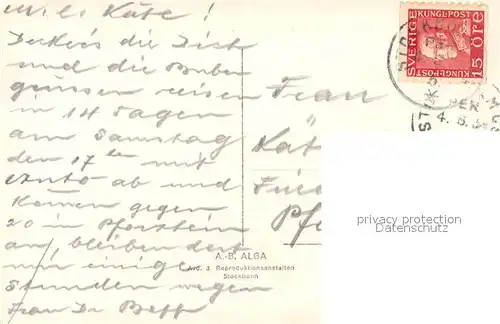 m. l. Käte!
Deckers die Dich
und die Buben
grüssen reisen
in 14 Tagen
am Samstag
den 17ten mit
Auto ab und
kommen gegen
20 in Pforzheim
an, bleiben dort
nur einige
Stunden wegen
Frau Dr Beff
Frau
Kät
Pf
SVERIGE
KUNGL·POST
15 ÖRE
KUNGL·POST
privacy protection
Datenschutz
A.-B. ALGA
Avd. 3 Reproduktionsanstalten
Stockholm